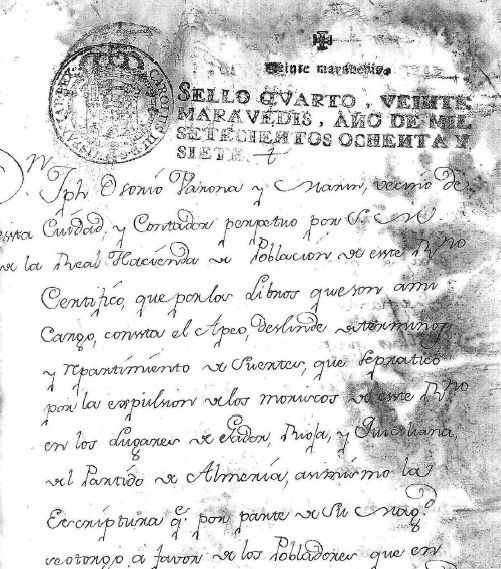 Veinte maravedis
SELLO QVARTO, VEINTE
MARAVEDIS, AÑO DE MIL
SETECIENTOS OCHENTA Y
SIETE.
CAROLUS III D. G. HISPANIAR REX
Dn
Jph Osorio y Marin, vecino de
esta Ciudad, y Contador perpetuo por S. M.
de la Real Hacienda de Poblacion de este Rno
Certifico, que por los Libros que son a mi
Cargo, consta el Apeo, deslinde de terminos
y repartimiento de Suertes, que se practicó
por la expulsion de los moriscos de este Rno
en los Lugares de Gador, Rioja, y Quiciliana,
del Partido de Almeria, asimismo la
Escriptura q.e por parte de Su Magd
se otorgo a favor de los Pobladores que en